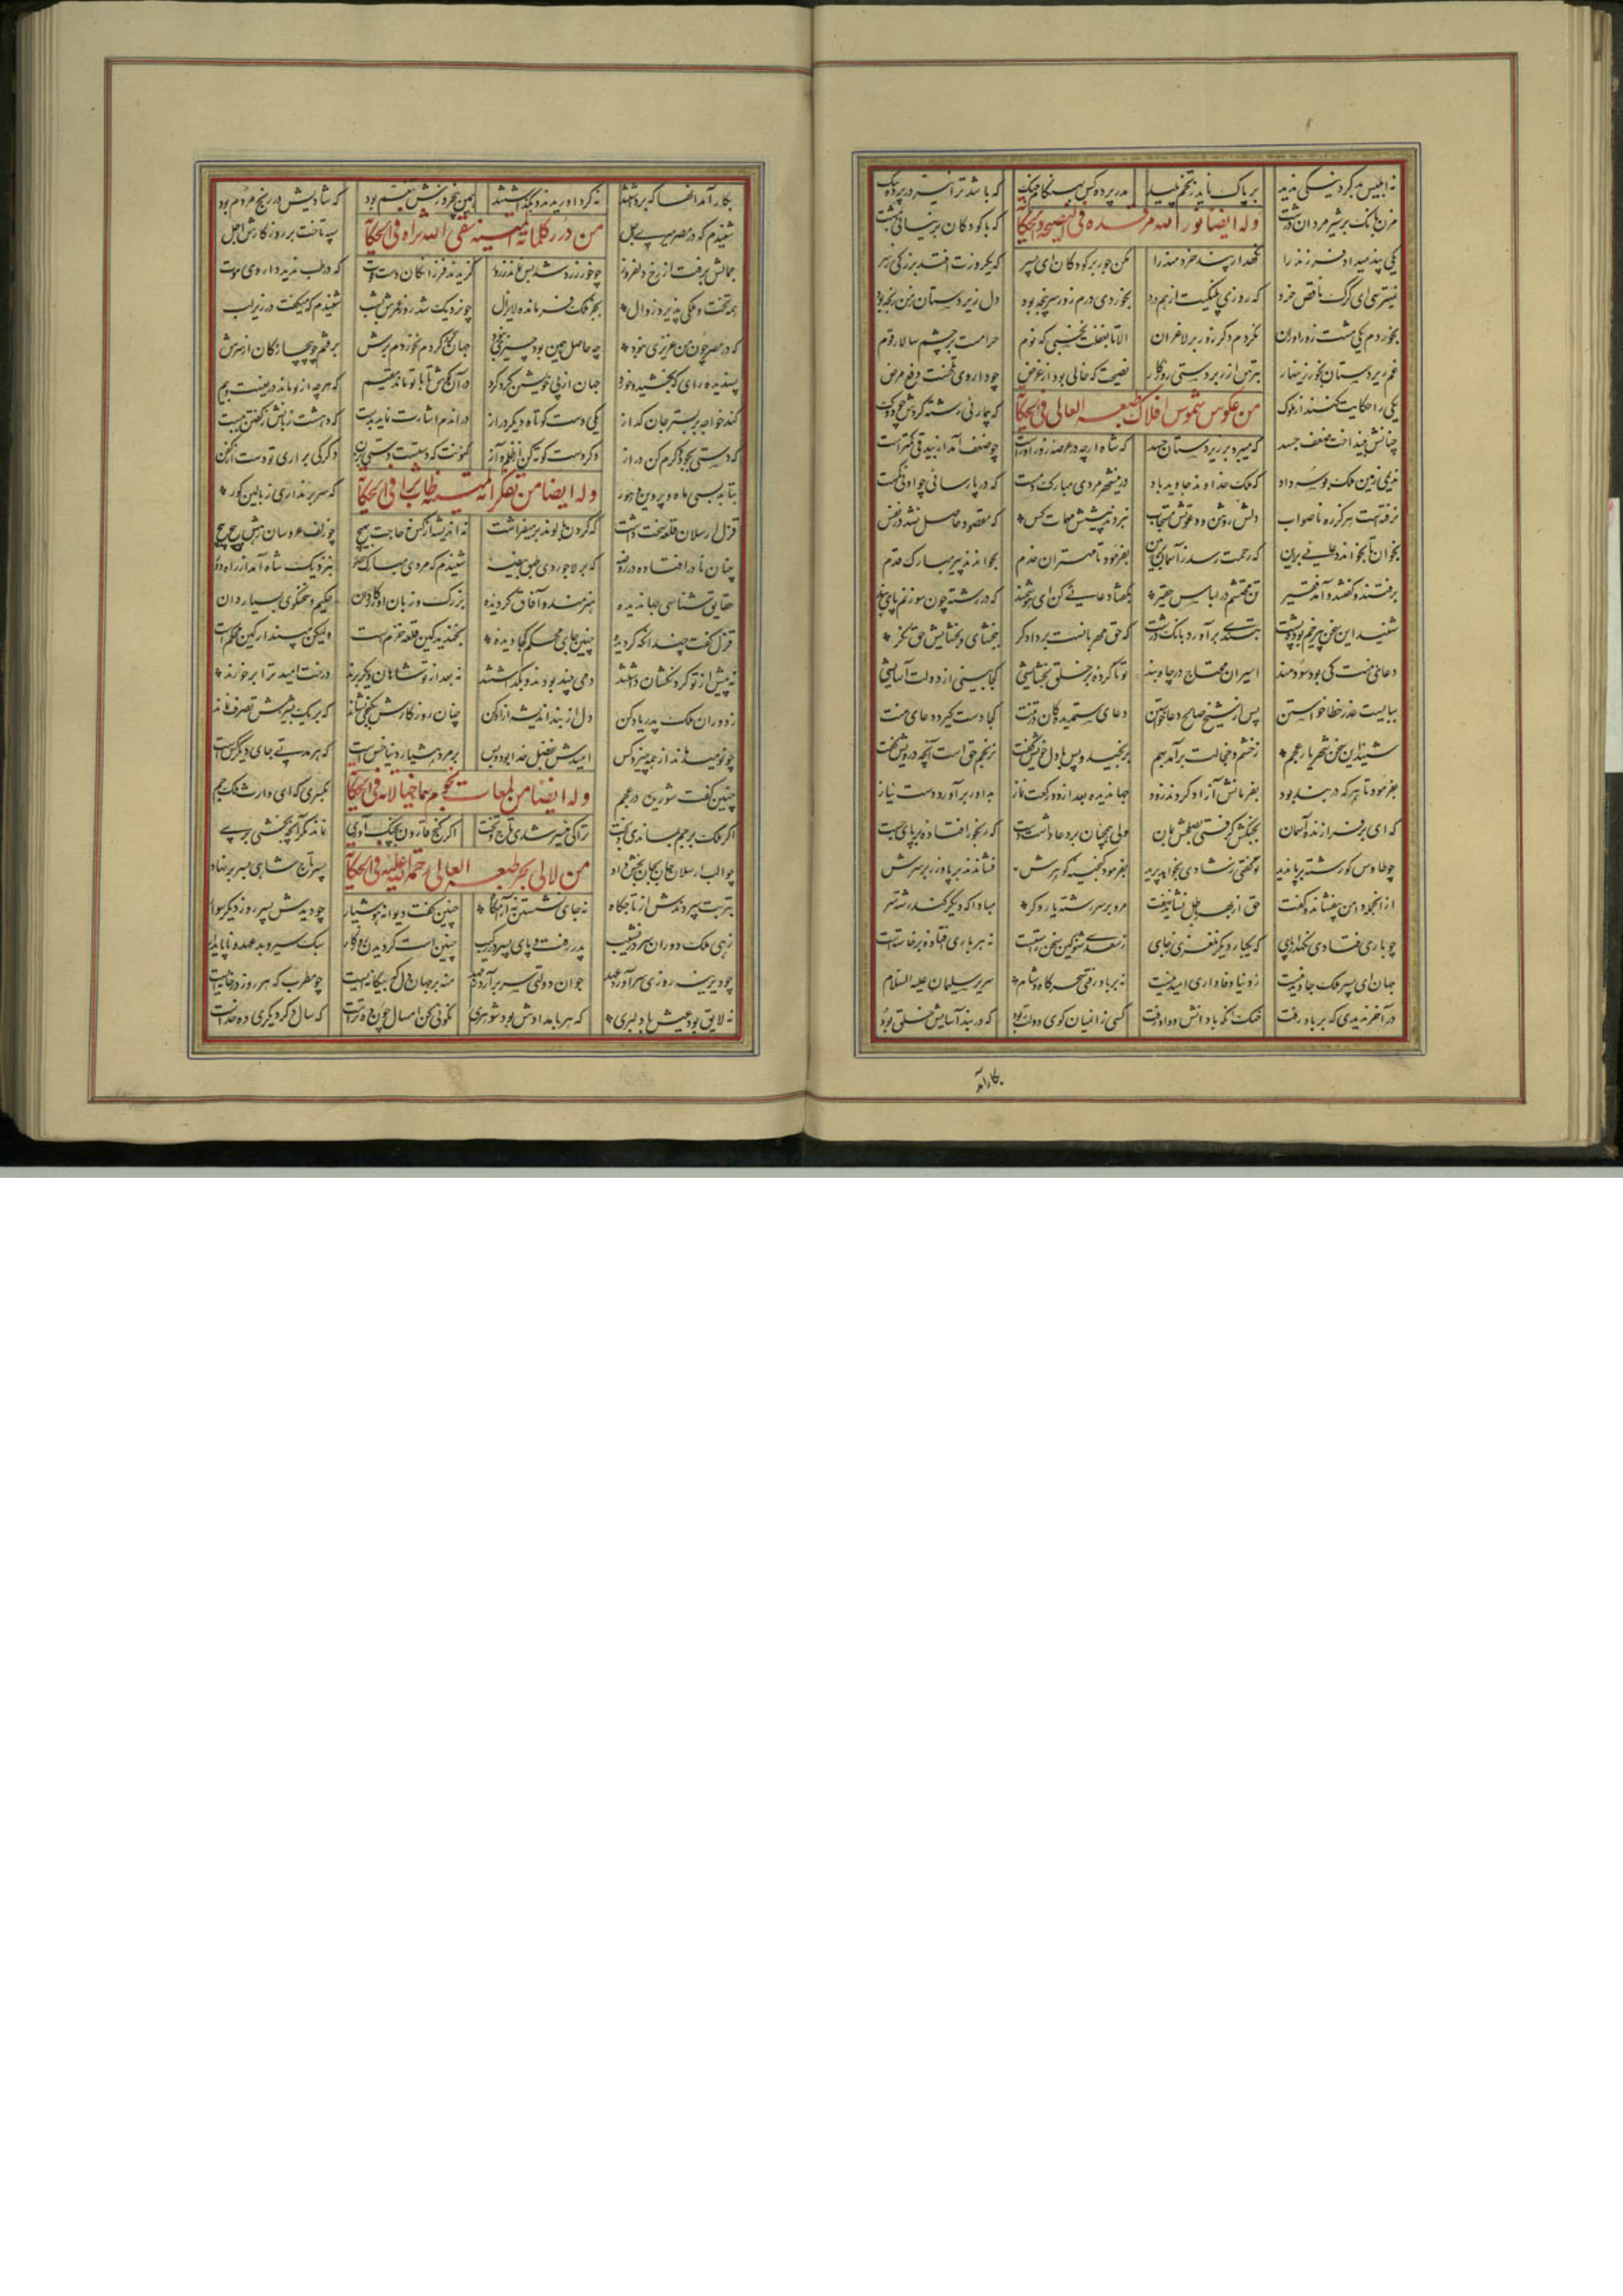 نه ابلیس بد کرد و نیکی ندید بر پاک ناید ز تخم پلید مدر پرده کس بهنگام جنگ که باشد ترا نیز در پرده ننگ
مزن بانک بر شیر مردان درشت که با کودکان بر نیائی بمشت
وله ایضا نور الله مرقده فی النصیحه و الحکایة
یکی پند میداد فرزند را نگهدار پند خردمند را مکن جور بر کودکان ای پسر که یکروزت افتد بزرگی بسر
نمیترسی ای گرگ ناقص خرد که روزی پلنگیت از هم درد بخوردی درم زور سرپنجه بود دل زیردستان ز من رنجه بود
بخوردم یکی مشت زورآوران نکردم دگر زور بر لاغران الا تا بغفلت نخسبی که نوم حرامست بر چشم سالار قوم
غم زیردستان بخور زینهار بترس از زبردستی روزگار نصیحت که خالی بود از غرض چو داروی تلخست دفع مرض
یکی را حکایت کنند از ملوک که بیماری رشته کردش چو دوک
من عکوس شموس افلاک طبعه العالی فی الحکایة
چنانش بینداخت ضعف جسد که میبرد بر زیردستان حسد که شاه ارچه در عرصه زورآورست چو ضعف آمد از بیدقی کمترست
ندیمی زمین ملک بوسه داد که ملک خداوند جاوید باد درین شهر مردی مبارک دمست که در پارسائی چو او کمست
نرفته است هرگز ره ناصواب دلش روشن و دعوتش مستجاب نبردند پیشش مهمات کس که مقصود حاصل نشد در نفس
بخوان تا بخواند دعائی برین که رحمت رسد ز آسمان بر زمین بفرمود تا مهتران خدم بخواندند پیر مبارک قدم
برفتند و گفتند و آمد فقیر تن محتشم در لباس حقیر بگفتا دعائی کن ای هوشمند که در رشته چون سوزنم پای بند
شنید این سخن پیر خم بوده پشت بتندی برآورد بانک درشت که حق مهربانست بر دادگر ببخشای و بخشایش حق نگر
دعای منت کی بود سودمند اسیران محتاج در چاه و بند تو ناکرده بر خلق بخشایشی کجا بینی از دولت آسایشی
ببایست عذر خطا خواستن پس از شیخ صالح دعا خواستن دعای ستمدیدگان در کجا دست گیرد دعای منت
شنید این سخن شهریار عجم ز خشم و خجالت برآمد بهم برنجید و پس با دل خویش گفت نرنجم حق است آنچه درویش گفت
بفرمود تا هر که در بند بود بفرمانش آزاد کردند زود جهاندیده بعد از دو رکعت نماز بداور برآورد دست نیاز
که ای برفرازنده آسمان بجنگش گرفتی بصلحش بمان ولی همچنان بر دعا داشت دست که رنجور افتاده بر پای جست
چو طاوس کو رشته بر پا ندید تو گفتی ز شادی بخواهد پرید بفرمود گنجینه گوهرش فشاندند بر پا و زر بر سرش
از آنجمله دامن بیفشاند و گفت حق از بهر باطل نشاید نهفت مرو بر سر رشته بار دگر مبادا که دیگر کند رشته سر
چو باری فتادی نگهدار پای که یکبار دیگر نلغزی ز جای ز سعدی شنو کین سخن راستست نه هر باری افتاده برخاستست
جهان ای پسر ملک جاوید نیست ز دنیا وفاداری امید نیست نه بر باد رفتی سحرگاه و شام سریر سلیمان علیه السلام
در آخر ندیدی که بر باد رفت خنک آنکه با دانش و داد رفت کسی زین میان گوی دولت ربود که در بند آسایش خلق بود
بکار آمد
بکار آمد آنها که برداشتند نه گرد آوریدند و بگذاشتند
شنیدم که در مصر میری اجل سپه تاخت بر روزگارش اجل
من درر کلماته فی الحکایة
جمالش برفت از رخ دلفروز چو خور زرد شد بس نماند ز روز گزیدند فرزانگان دست فوت که در طب ندیدند داروی موت
همه تخت و ملکی پذیرد زوال بجز ملک فرمانده لایزال چو نزدیک شد روز عمرش بشب شنیدم که میگفت در زیر لب
که در مصر چون من عزیزی نبود چه حاصل همین بود چیزی نبود جهان گرد کردم نخوردم برش برفتم چو بیچارگان از سرش
پسندیده رای که بخشید و خورد جهان از پی خویشتن گرد کرد در آن کوش تا با تو ماند مقیم که هرچه از تو ماند دریغست و بیم
کند خواجه بر بستر جان گداز یکی دست کوتاه و دیگر دراز در اندم اشارت نماید بدست که دهشت زبانش ز گفتن ببست
که دستی بجود و کرم کن دراز دگر دست کوته کن از ظلم و آز کنونت که دستست دستی بزن دگر کی براری تو دست از کفن
بتابد بسی ماه و پروین و هور که سر برنداری ز بالین گور
وله ایضا من تفکراته فی الحکایة
قزل ارسلان قلعه سخت داشت که گردن بالوند بر میفراشت نه اندیشه از کس نه حاجت بهیچ چو زلف عروسان رهش پیچ پیچ
چنان نادر افتاده در روضه که بر لاجوردی طبق بیضه شنیدم که مردی مبارک حضور بنزدیک شاه آمد از راه دور
حقایق شناسی جهاندیده هنرمند و آفاق گردیده بزرگ و زبان آور و کاردان حکیم و سخنگوی بسیار دان
قزل گفت چندانکه گردیده چنین جای محکم کجا دیده بخندید کین قلعه خرم است ولیکن نپندارمش محکم است
نه پیش از تو گردنکشان داشتند دمی چند بودند و بگذاشتند نه بعد از تو شاهان دیگر برند درخت امید ترا بر خورند
ز دوران ملک پدر یاد کن دل از بند اندیشه آزاد کن چنان روزگارش بکنجی نشاند که بر یک پشیزش تصرف نماند
چو نومید ماند از همه چیز و کس امیدش بفضل خدا بود و بس بر مرد هشیار دنیا خس است که هر مدتی جای دیگر کس است
چنین گفت شوریده در عجم بکسری که ای وارث ملک جم
وله ایضا من لمعات نجوم سماء خیالاته فی الحکایة
اگر ملک بر جم بماندی و بخت ترا کی میسر شدی تاج و تخت اگر گنج قارون بچنگ آوری نماند مگر آنچه بخشی بری
چو الب ارسلان جان بجان بخش داد پسر تاج شاهی بسر بر نهاد
من لالی بحر طبعه العالی رحمة الله علیه فی الحکایة
بتربت سپردندش از تاجگاه نه جای نشستن نه آرامگاه چنین گفت دیوانه هوشیار چو دیدش پسر روز دیگر سوار
زهی ملک دوران سر در نشیب پدر رفت و پای پسر در رکیب چنین است گردیدن روزگار سبک سیر و بدعهد و ناپایدار
چو دیرینه روزی سرآورد عهد جوان دولتی سر برآرد ز مهد منه بر جهان دل که بیگانه ایست چو مطرب که هر روز در خانه ایست
نه لایق بود عیش با دلبری که هر بامدادش بود شوهری نکوئی کن امسال چون ده تراست که سال دگر دیگری ده خداست